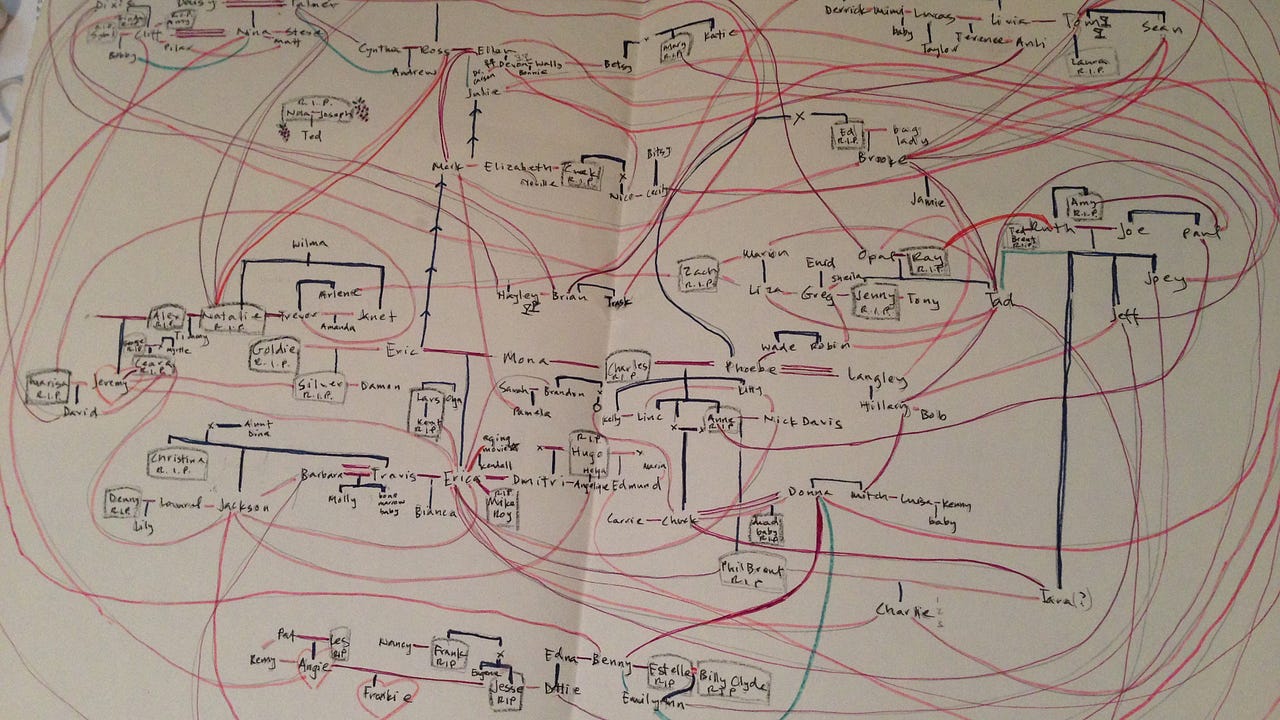 Daisy
Palmer
Cliff
R.I.P.
Nina
Steve
Matt
Bobby
Cynthia
Ross
Ellen
Andrew
Devon
Wally
Bonnie
Dr.
Julie
Betsy
Mary
R.I.P.
Katie
Derrick
Mimi
Lucas
baby
Taylor
Terence
Livia
Tom
Sean
Laura
R.I.P.
R.I.P.
Noa Joseph
Ted
Mark
Elizabeth
R.I.P.
Bitsy
Nico
Cecily
X
Ed
R.I.P.
bag
lady
Brooke
Jamie
Wilma
Arlene
Trevor
Janet
Amanda
Alex
R.I.P.
Natalie
R.I.P.
Timmy
Hayley
Brian
Trask
Zach
R.I.P.
Marion
Liza
Enid
Greg
Sheila
Opal
Ray
R.I.P.
Jenny
R.I.P.
Tony
Tad
Ted
Brent
R.I.P.
Ruth
Amy
R.I.P.
Joe
Paul
Joey
Jeff
Goldie
R.I.P.
Eric
Mona
Charles
R.I.P.
Phoebe
Wade
Robin
Langley
Marisa
R.I.P.
Jeremy
David
Silver
R.I.P.
Damon
Lars
Kent
R.I.P.
Sarah
Brandon
Pamela
Kelly
Linc
Anne
R.I.P.
Nick Davis
Hillary
Bob
X
Aunt
Christina
R.I.P.
Barbara
Travis
Erica
aging
movie
Kendall
Dmitri
R.I.P.
Hugo
Angelique
Edmund
Maria
Molly
bone
marrow
baby
Bianca
R.I.P.
Mike
Roy
Denny
R.I.P.
Lily
Jackson
Carrie
Chuck
Donna
Mitch
Luisa
Kenny
baby
dead
baby
R.I.P.
Phil Brent
R.I.P.
Charlie
Tara(?)
Pat
Les
RIP
Remy
Angie
Frankie
Nancy
Frank
R.I.P.
X
Eugene
Jesse
R.I.P.
Edna
Benny
Dottie
Estelle
R.I.P.
Billy Clyde
R.I.P.
Emily Ann